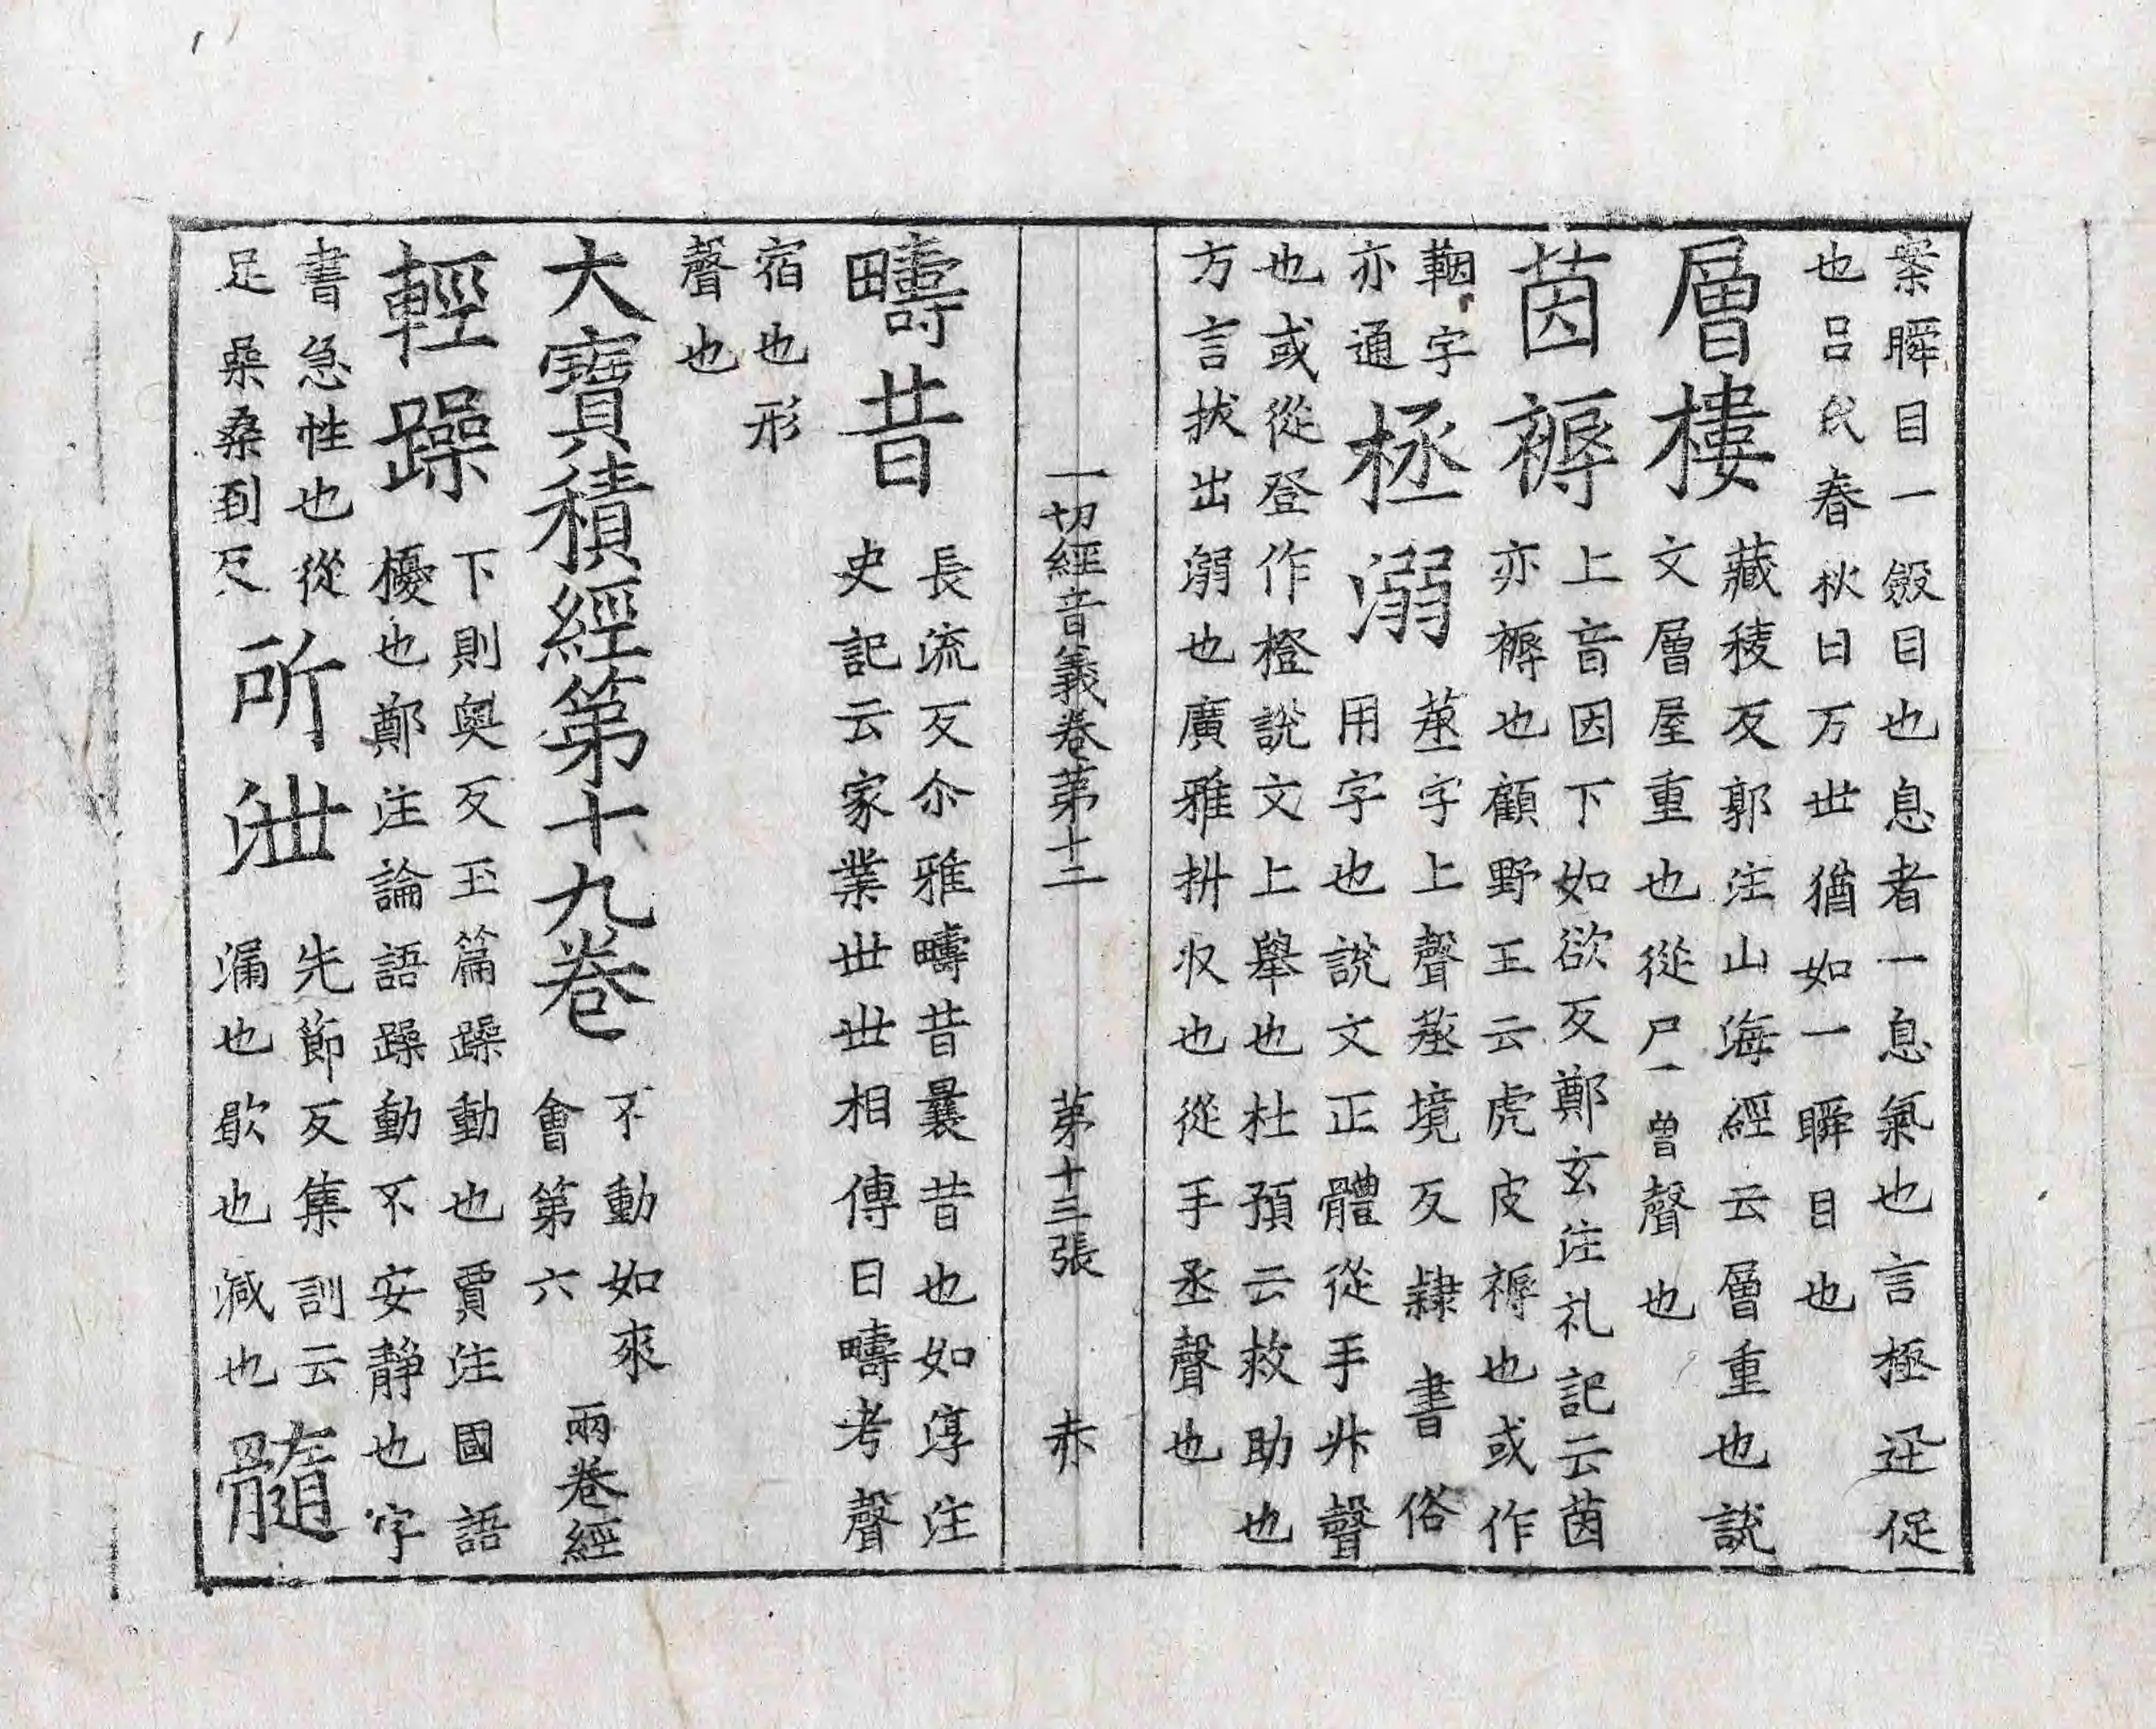 案瞬目一斂目也息者一息氣也言極迅促
也呂氏春秋曰万世猶如一瞬目也
層樓
藏稜反郭注山海經云層重也說
文層屋重也從尸曾聲也
茵褥
上音因下如欲反鄭玄注礼記云茵
亦褥也顧野王云虎皮褥也或作
鞇字
亦通
拯溺
蒸字上聲蒸境反隸書俗
用字也說文正體從手升聲
也或從登作橙說文上舉也杜預云救助也
方言拔出溺也廣雅抍収也從手丞聲也
一切經音義卷第十二　第十三張　赤
疇昔
長流反尒雅疇昔曩昔也如淳注
史記云家業世世相傳曰疇考聲
宿也形
聲也
大寶積經第十九卷
不動如來
會第六
兩卷經
輕躁
下則奧反玉篇躁動也賈注國語
擾也鄭注論語躁動不安静也字
書急性也從
足喿桑到反
所泄
先節反集訓云
漏也歇也減也
髓